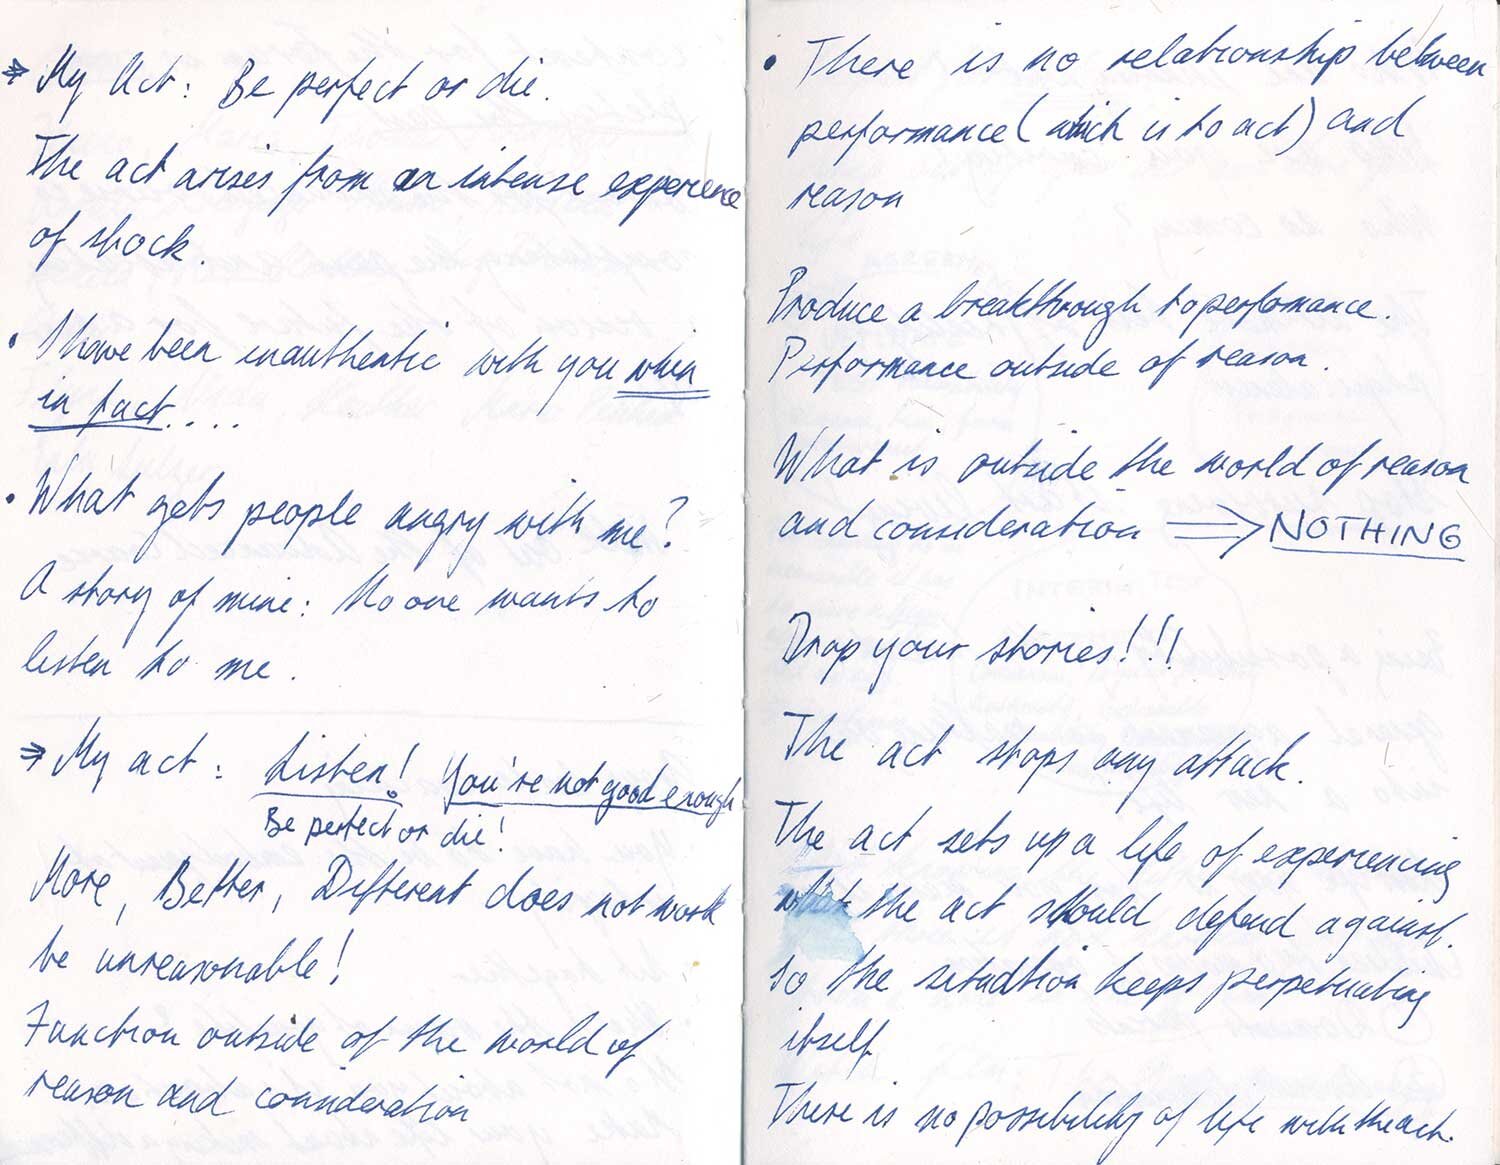 → My Act: Be perfect or die.
The act arises from an intense experience
of shock.
• I have been inauthentic with you when
in fact....
• What gets people angry with me?
A story of mine: No one wants to
listen to me.
→ My act: Listen! You're not good enough
Be perfect or die!
More, Better, Different does not work
be unreasonable!
Function outside of the world of
reason and consideration
• There is no relationship between
performance (which is to act) and
reason
Produce a breakthrough to performance.
Performance outside of reason.
What is outside the world of reason
and consideration ⟹ NOTHING
Drop your stories!!!
The act stops any attack.
The act sets up a life of experiencing
what the act should defend against.
So the situation keeps perpetuating
itself
There is no possibility of life with the act.